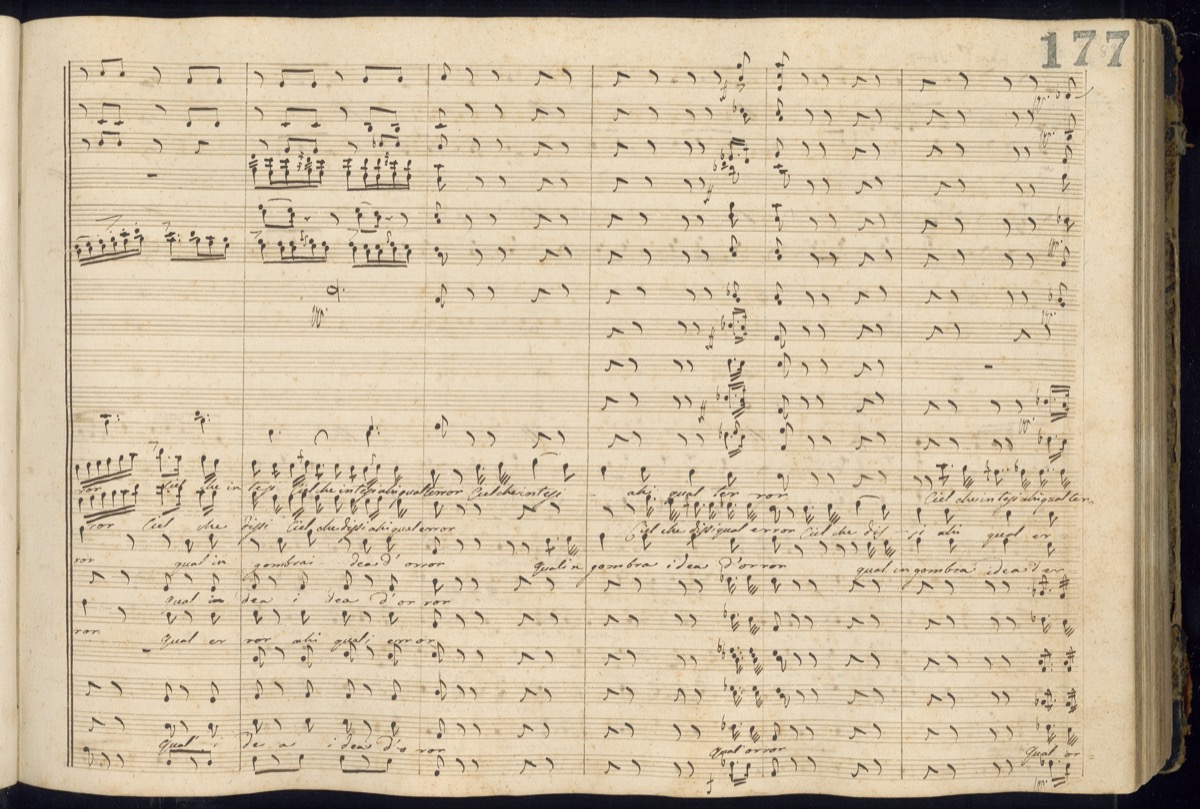 177
ror Ciel che in tesi Ciel che intesi ahi qual terror Ciel che intesi ahi qual ter ror Ciel che intesi ahi qual ter
ror Ciel che dissi Ciel che dissi ahi qual error Ciel che dissi qual error Ciel che dis si ahi qual er
ror qual in gombra i dea d'orror qual in gombra idea d'orror qual in gombra idea d'or
qual in dea i dea d'or ror
ror qual er ror ahi qual error
qual i de a idea d'o ror qual orror qual or